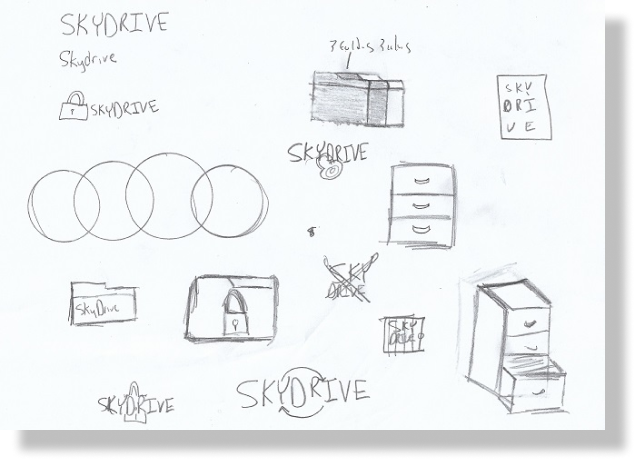 SKYDRIVE
Skydrive
SKYDRIVE
SKY
DRI
VE
SKYDRIVE
SKY
DRIVE
SkyDrive
SKY
DRIVE
SKYDRIVE
SKYDRIVE